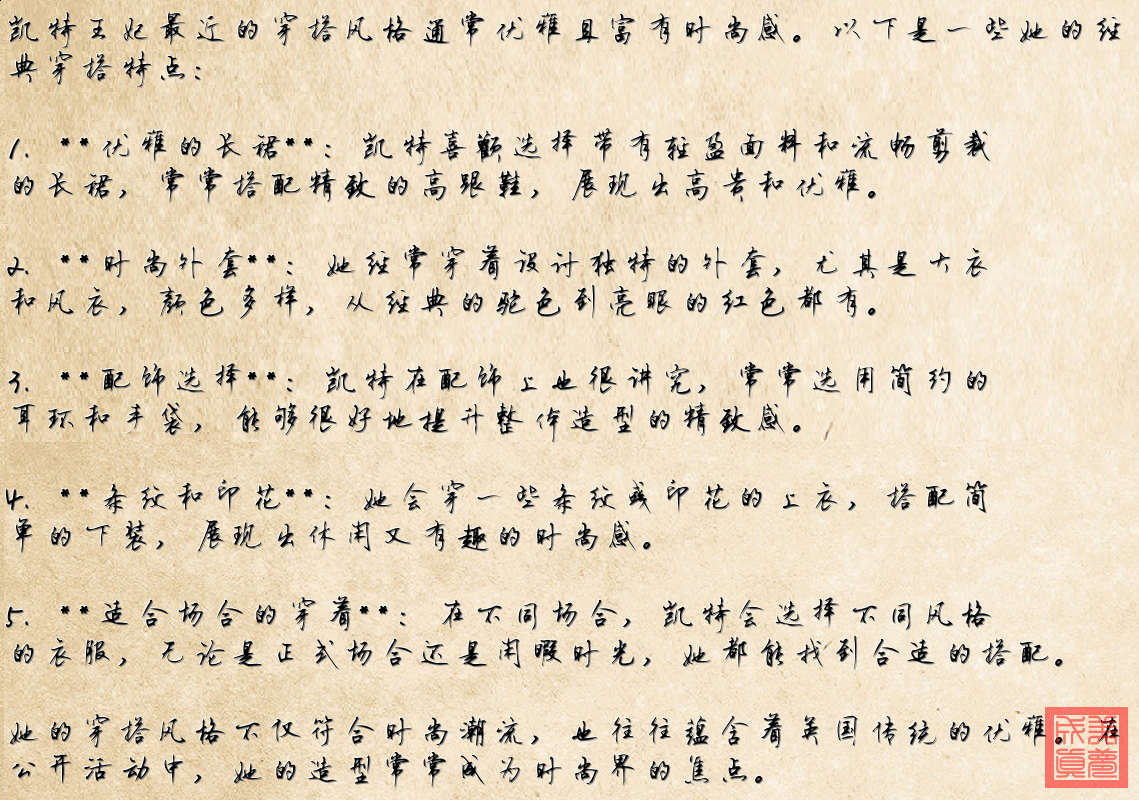 凯特王妃最近的穿搭风格通常优雅且富有时尚感。以下是一些她的经
典穿搭特点：
1. **优雅的长裙**：凯特喜歡选择带有轻盈面料和流畅剪裁
的长裙，常常搭配精致的高跟鞋，展现出高贵和优雅。
2. **时尚外套**：她经常穿着设计独特的外套，尤其是大衣
和风衣，颜色多样，从经典的驼色到亮眼的红色都有。
3. **配饰选择**：凯特在配饰上也很讲究，常常选用简约的
耳环和手袋，能够很好地提升整体造型的精致感。
4. **条纹和印花**：她会穿一些条纹或印花的上衣，搭配简
单的下装，展现出休闲又有趣的时尚感。
5. **适合场合的穿着**：在不同场合，凯特会选择不同风格
的衣服，无论是正式场合还是闲暇时光，她都能找到合适的搭配。
她的穿搭风格不仅符合时尚潮流，也往往蕴含着英国传统的优雅。在
公开活动中，她的造型常常成为时尚界的焦点。
美梦
成真